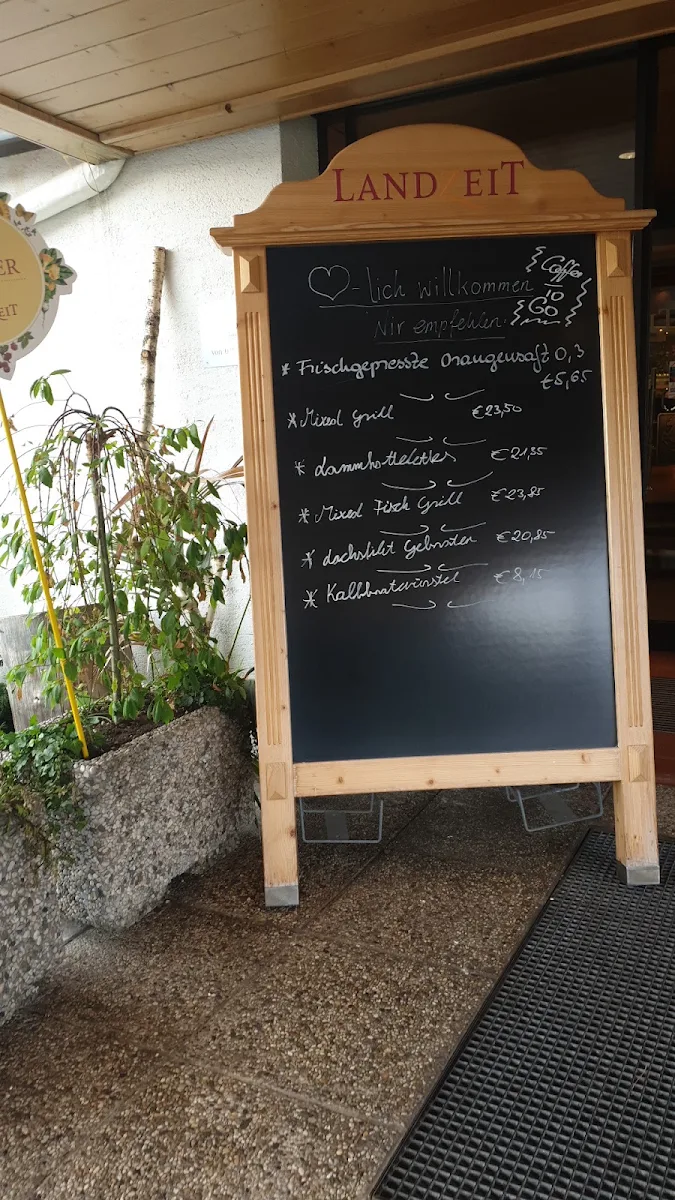 LANDZEIT
Coffee
to
Go
-lich willkommen
Wir empfehlen
* Frischgepresste Orangensaft 0,3
€5,65
* Mixed Grill €23,50
* Lammkotteletten €21,35
* Mixed Fisch Grill €23,85
* Lachsfilet Gebraten €20,85
* Kalbbratwürstel €8,15
ER
EIT